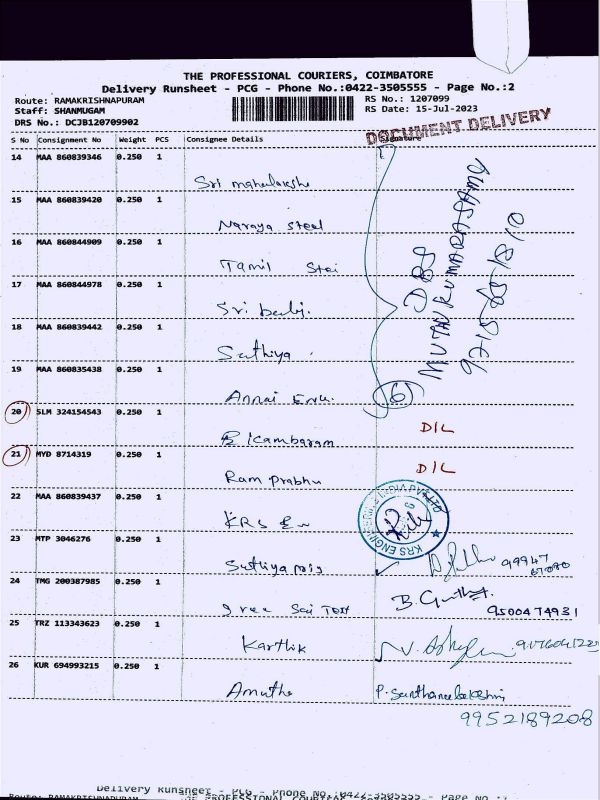 THE PROFESSIONAL COURIERS, COIMBATORE
Delivery Runsheet - PCG - Phone No.:0422-3505555 - Page No.:2
Route: RAMAKRISHNAPURAM RS No.: 1207099
Staff: SHANMUGAM RS Date: 15-Jul-2023
DRS No.: DCJB120709902
DOCUMENT DELIVERY
S No Consignment No Weight PCS Consignee Details Signature
14 MAA 860839346 0.250 1
15 MAA 860839420 0.250 1
Naraya steel
16 MAA 860844909 0.250 1
Tamil
17 MAA 860844978 0.250 1
Sri
18 MAA 860839442 0.250 1
Sathiya
19 MAA 860835438 0.250 1
Annai
DBS
MUTHUKUMARASAMY
6
20 SLM 324154543 0.250 1
D/L
21 MYD 8714319 0.250 1
Ram prabhu D/L
22 MAA 860839437 0.250 1
KRS
KRS ENGINEERING INDIA PVT LTD
23 MTP 3046276 0.250 1
24 TMG 200387985 0.250 1
Sree Sai
9500474931
25 TRZ 113343623 0.250 1
Karthik
26 KUR 694993215 0.250 1
Amutha
9952189208
Delivery Runsheet - PCG - Phone No.:0422-3505555 - Page No.:
Route: RAMAKRISHNAPURAM